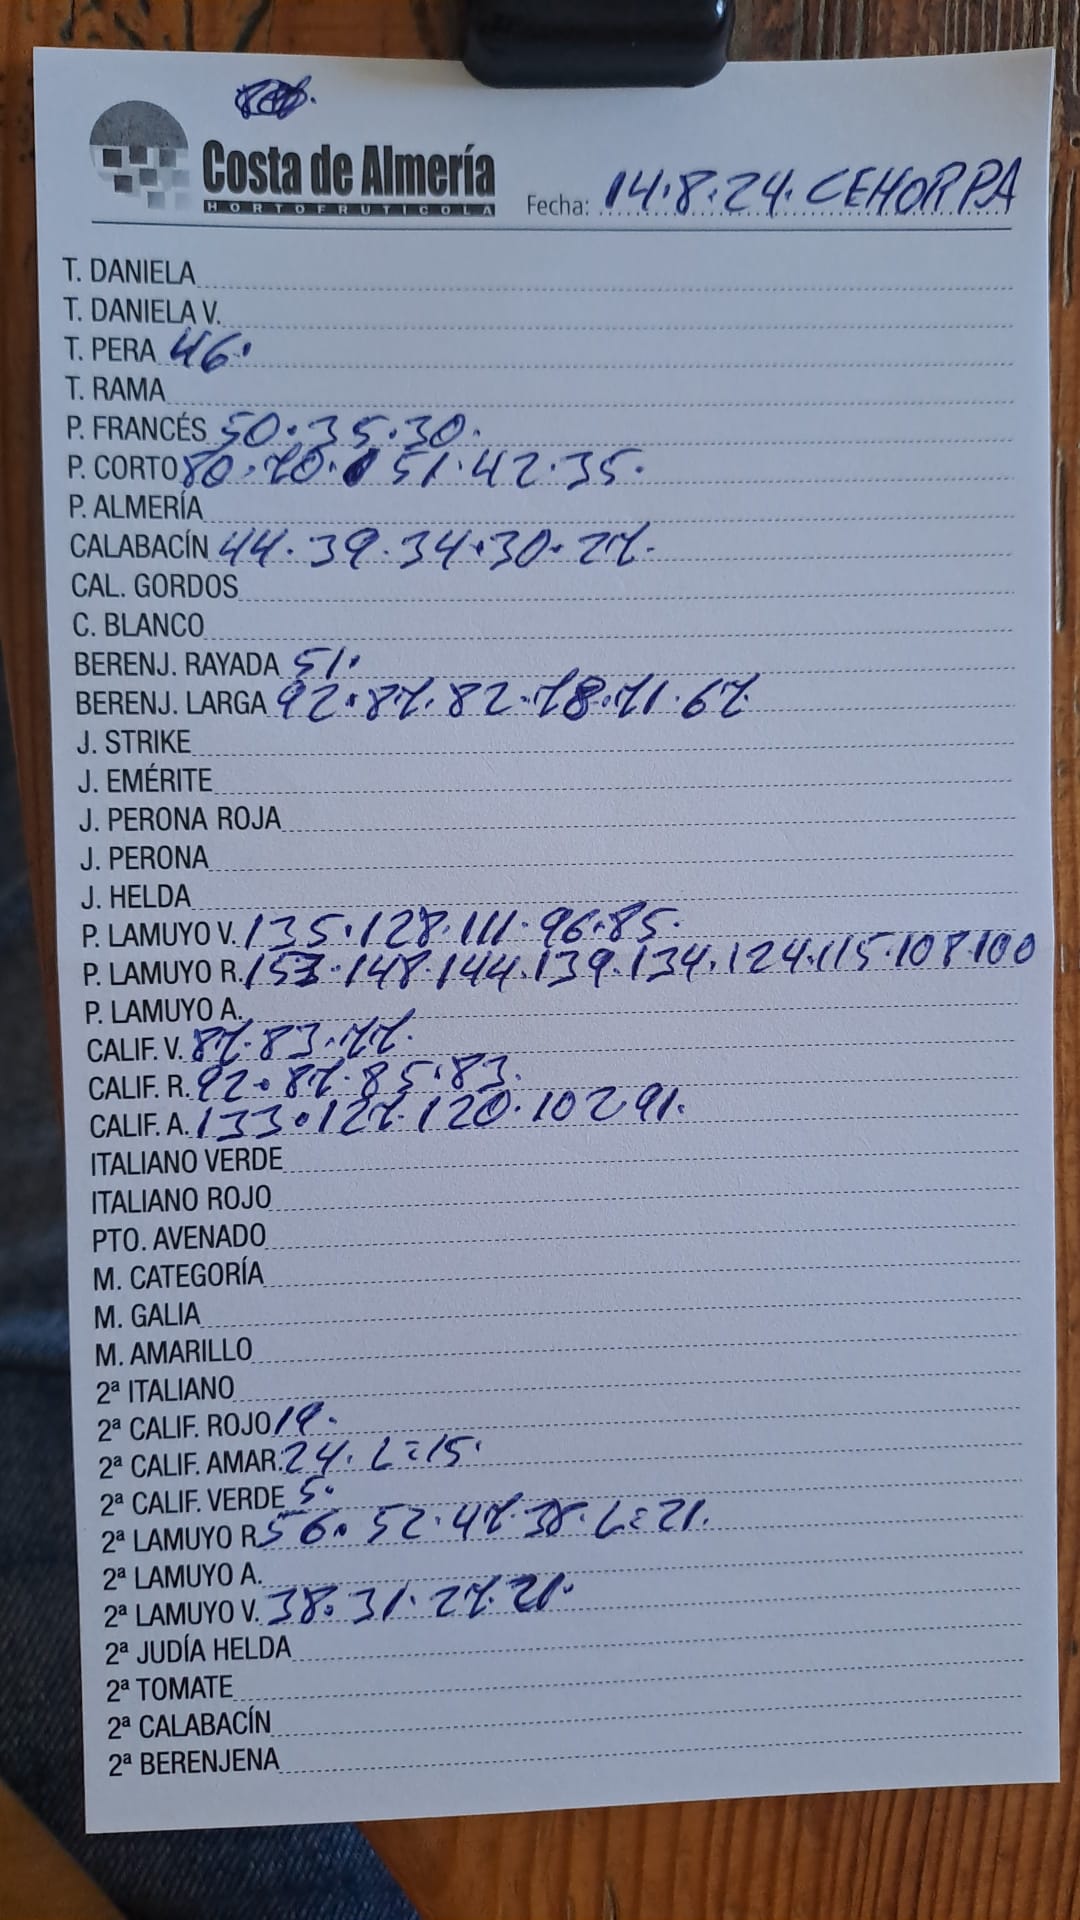 Costa de Almería
HORTOFRUTICOLA
Fecha: 14.8.24. CEHORPA
T. DANIELA
T. DANIELA V.
T. PERA 46.
T. RAMA
P. FRANCÉS 50.35.30.
P. CORTO 80.70. 51.42.35.
P. ALMERÍA
CALABACÍN 44.39.34.30.27.
CAL. GORDOS
C. BLANCO
BERENJ. RAYADA 51.
BERENJ. LARGA 92.87.82.78.71.67.
J. STRIKE
J. EMÉRITE
J. PERONA ROJA
J. PERONA
J. HELDA
P. LAMUYO V. 135.128.111.96.85.
P. LAMUYO R. 148.144.139.134.124.115.108.100
P. LAMUYO A.
CALIF. V. 87.83.77.
CALIF. R. 92.87.85.83.
CALIF. A. 133.127.120.102 91.
ITALIANO VERDE
ITALIANO ROJO
PTO. AVENADO
M. CATEGORÍA
M. GALIA
M. AMARILLO
2ª ITALIANO
2ª CALIF. ROJO 19.
2ª CALIF. AMAR. 24. L=15.
2ª CALIF. VERDE 5.
2ª LAMUYO R. 56.52.47.38.L=21.
2ª LAMUYO A.
2ª LAMUYO V. 38.31.27.21.
2ª JUDÍA HELDA
2ª TOMATE
2ª CALABACÍN
2ª BERENJENA